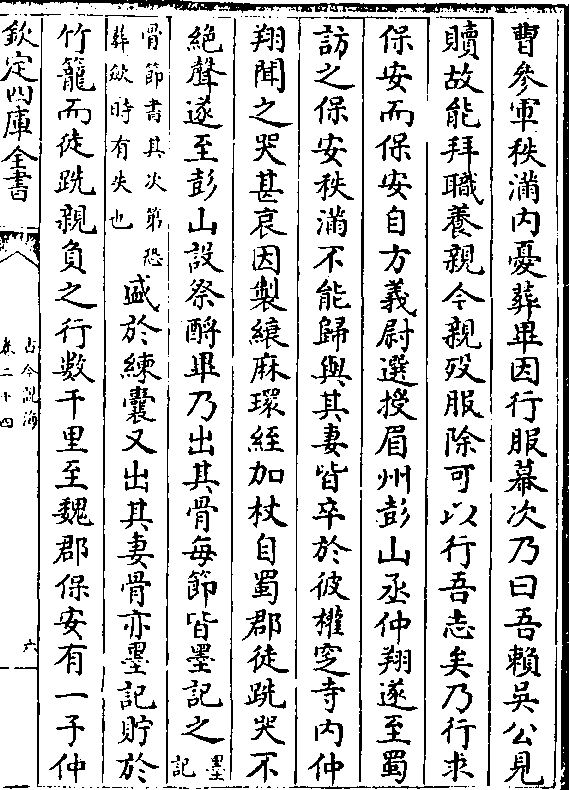 曹參軍秩滿内憂葬畢因行服幕次乃曰吾賴吳公見
贖故能拜職養親今親殁服除可以行吾志矣乃行求
保安而保安自方義尉選授眉州彭山丞仲翔遂至蜀
訪之保安秩滿不能歸與其妻皆卒於彼權窆寺内仲
翔聞之哭甚哀因製縗麻環絰加杖自蜀郡徒跣哭不
絶聲遂至彭山設祭酹畢乃出其骨每節皆墨記之墨記
骨節書其次第恐葬斂時有失也盛於練囊又出其妻骨亦墨記貯於
竹籠而徒跣親負之行數千里至魏郡保安有一子仲
欽定四庫全書
古今說海
卷二十四
六